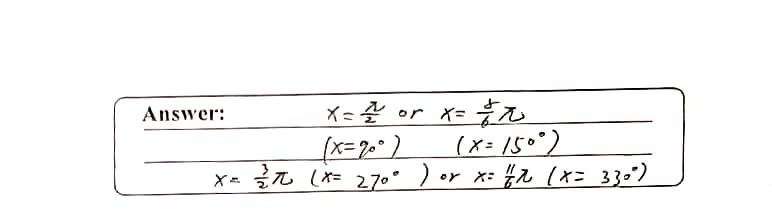 Answer: x = π/2 or x = 5/6 π
(x = 90°) (x = 150°)
x = 3/2 π (x = 270°) or x = 11/6 π (x = 330°)